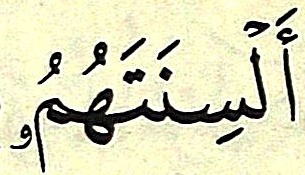 أَلۡسِنَتَهُمُۥ